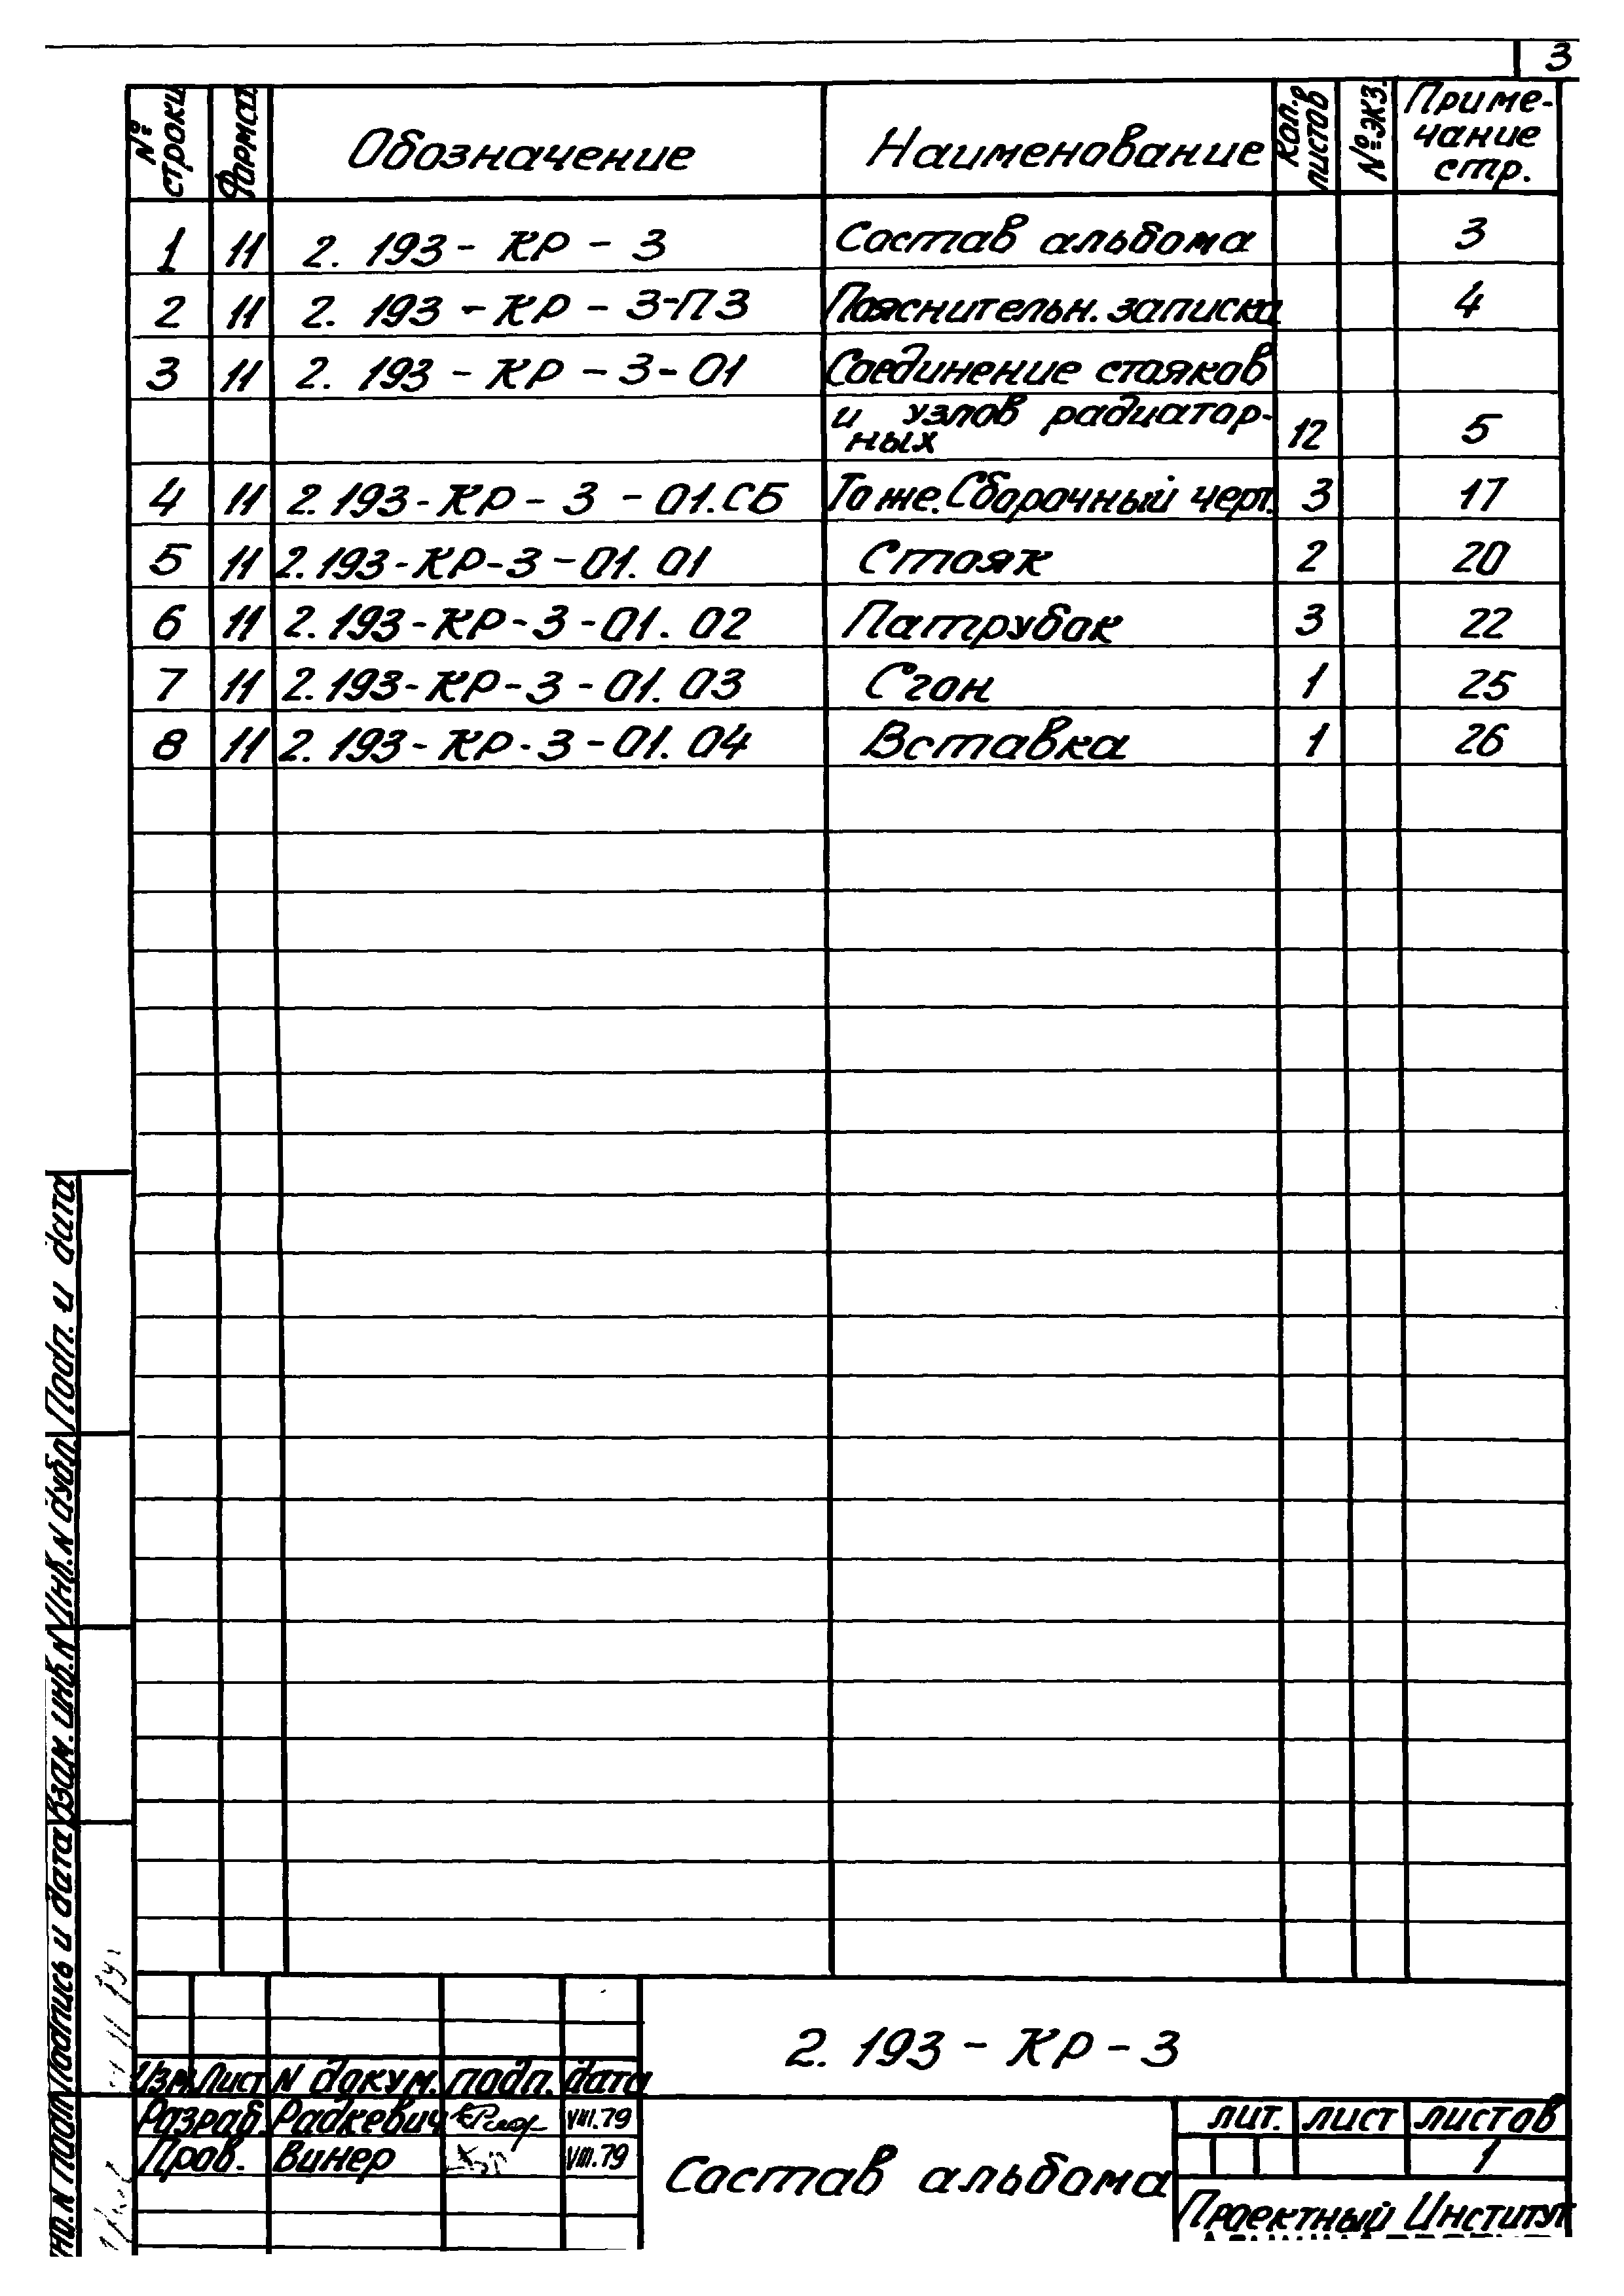 3
№ строки Формат Обозначение Наименование Кол. листов № экз. Приме-чание стр.
1 11 2. 193 - КР - 3 Состав альбома 3
2 11 2. 193 - КР - 3-ПЗ Пояснительн. записка 4
3 11 2. 193 - КР - 3 - 01 Соединение стояков
и узлов радиатор-
ных 12 5
4 11 2. 193 - КР - 3 - 01. СБ То же. Сборочный черт. 3 17
5 11 2. 193 - КР - 3 - 01. 01 Стояк 2 20
6 11 2. 193 - КР - 3 - 01. 02 Патрубок 3 22
7 11 2. 193 - КР - 3 - 01. 03 Сгон 1 25
8 11 2. 193 - КР - 3 - 01. 04 Вставка 1 26
Подп. и дата
Инв. N дубл.
Взам. инв. N
Подпись и дата
N подл
2. 193 - КР - 3
Изм Лист N докум. подп. дата
Разраб. Радкевич VIII.79
Пров. Винер VIII.79
Состав альбома
лит. лист листов
1
Проектный Институт